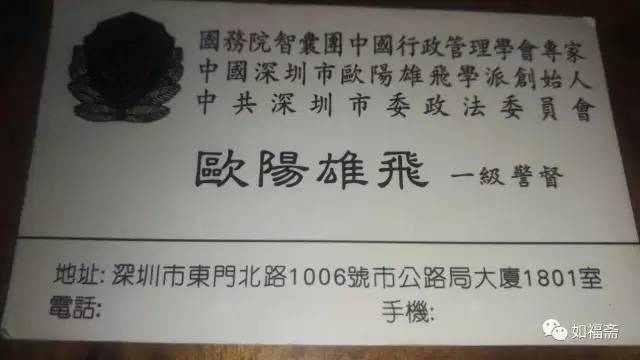 國務院智囊團中國行政管理學會專家
中國深圳市歐陽雄飛學派創始人
中共深圳市委政法委員會
歐陽雄飛 一級警督
地址: 深圳市東門北路1006號市公路局大廈1801室
電話: 手機:
如福斋